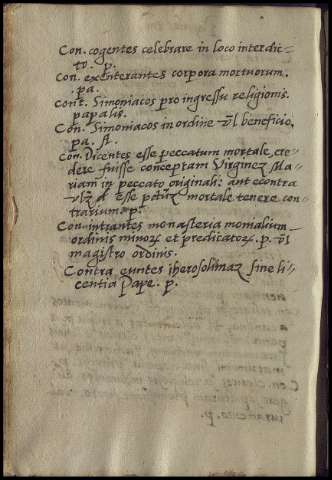 Con. cogentes celebrare in loco interdic-
to. p.
Con. exenterantes corpora mortuorum.
pa.
Cont. Simoniacos pro ingressu religionis.
papalis.
Con. Simoniacos in ordine vl beneficio,
pa. A.
Con. Dicentes esse peccatum mortale, cre-
dere fuisse conceptam Virginez Ma-
riam in peccato originali: aut econtra
vlz esse mortale tenere con-
trarium p.
Con. intrantes monasteria monialium
ordinis minoꝝ et predicatoꝝ. p. vl
magistro ordinis.
Contra euntes iherosolimaz sine li-
centia Pape. p.